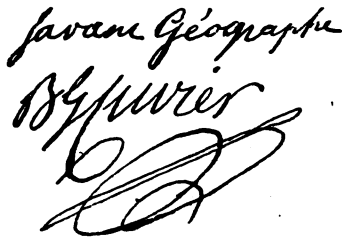 Savant Géographe
B G Cuvier